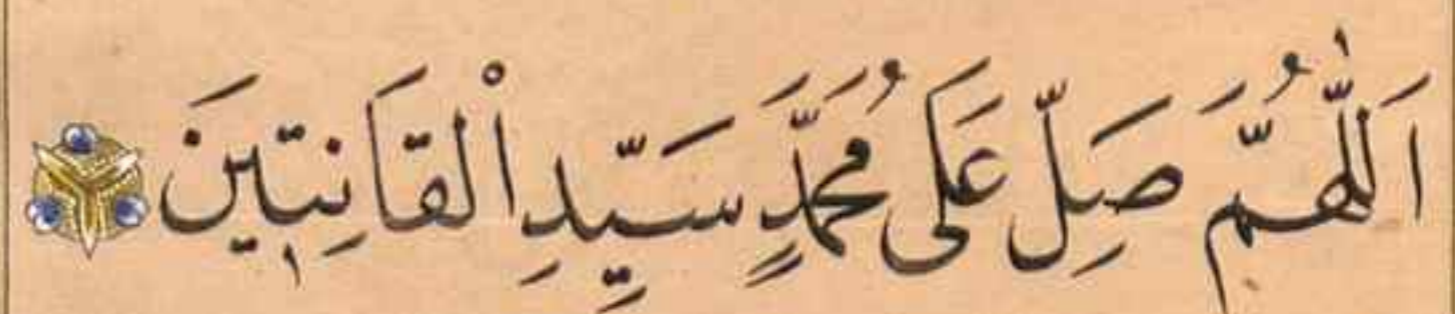 اَللّٰهُمَّ صَلِّ عَلَى مُحَمَّدٍ سَيِّدِ اْلقَانِتِينَ